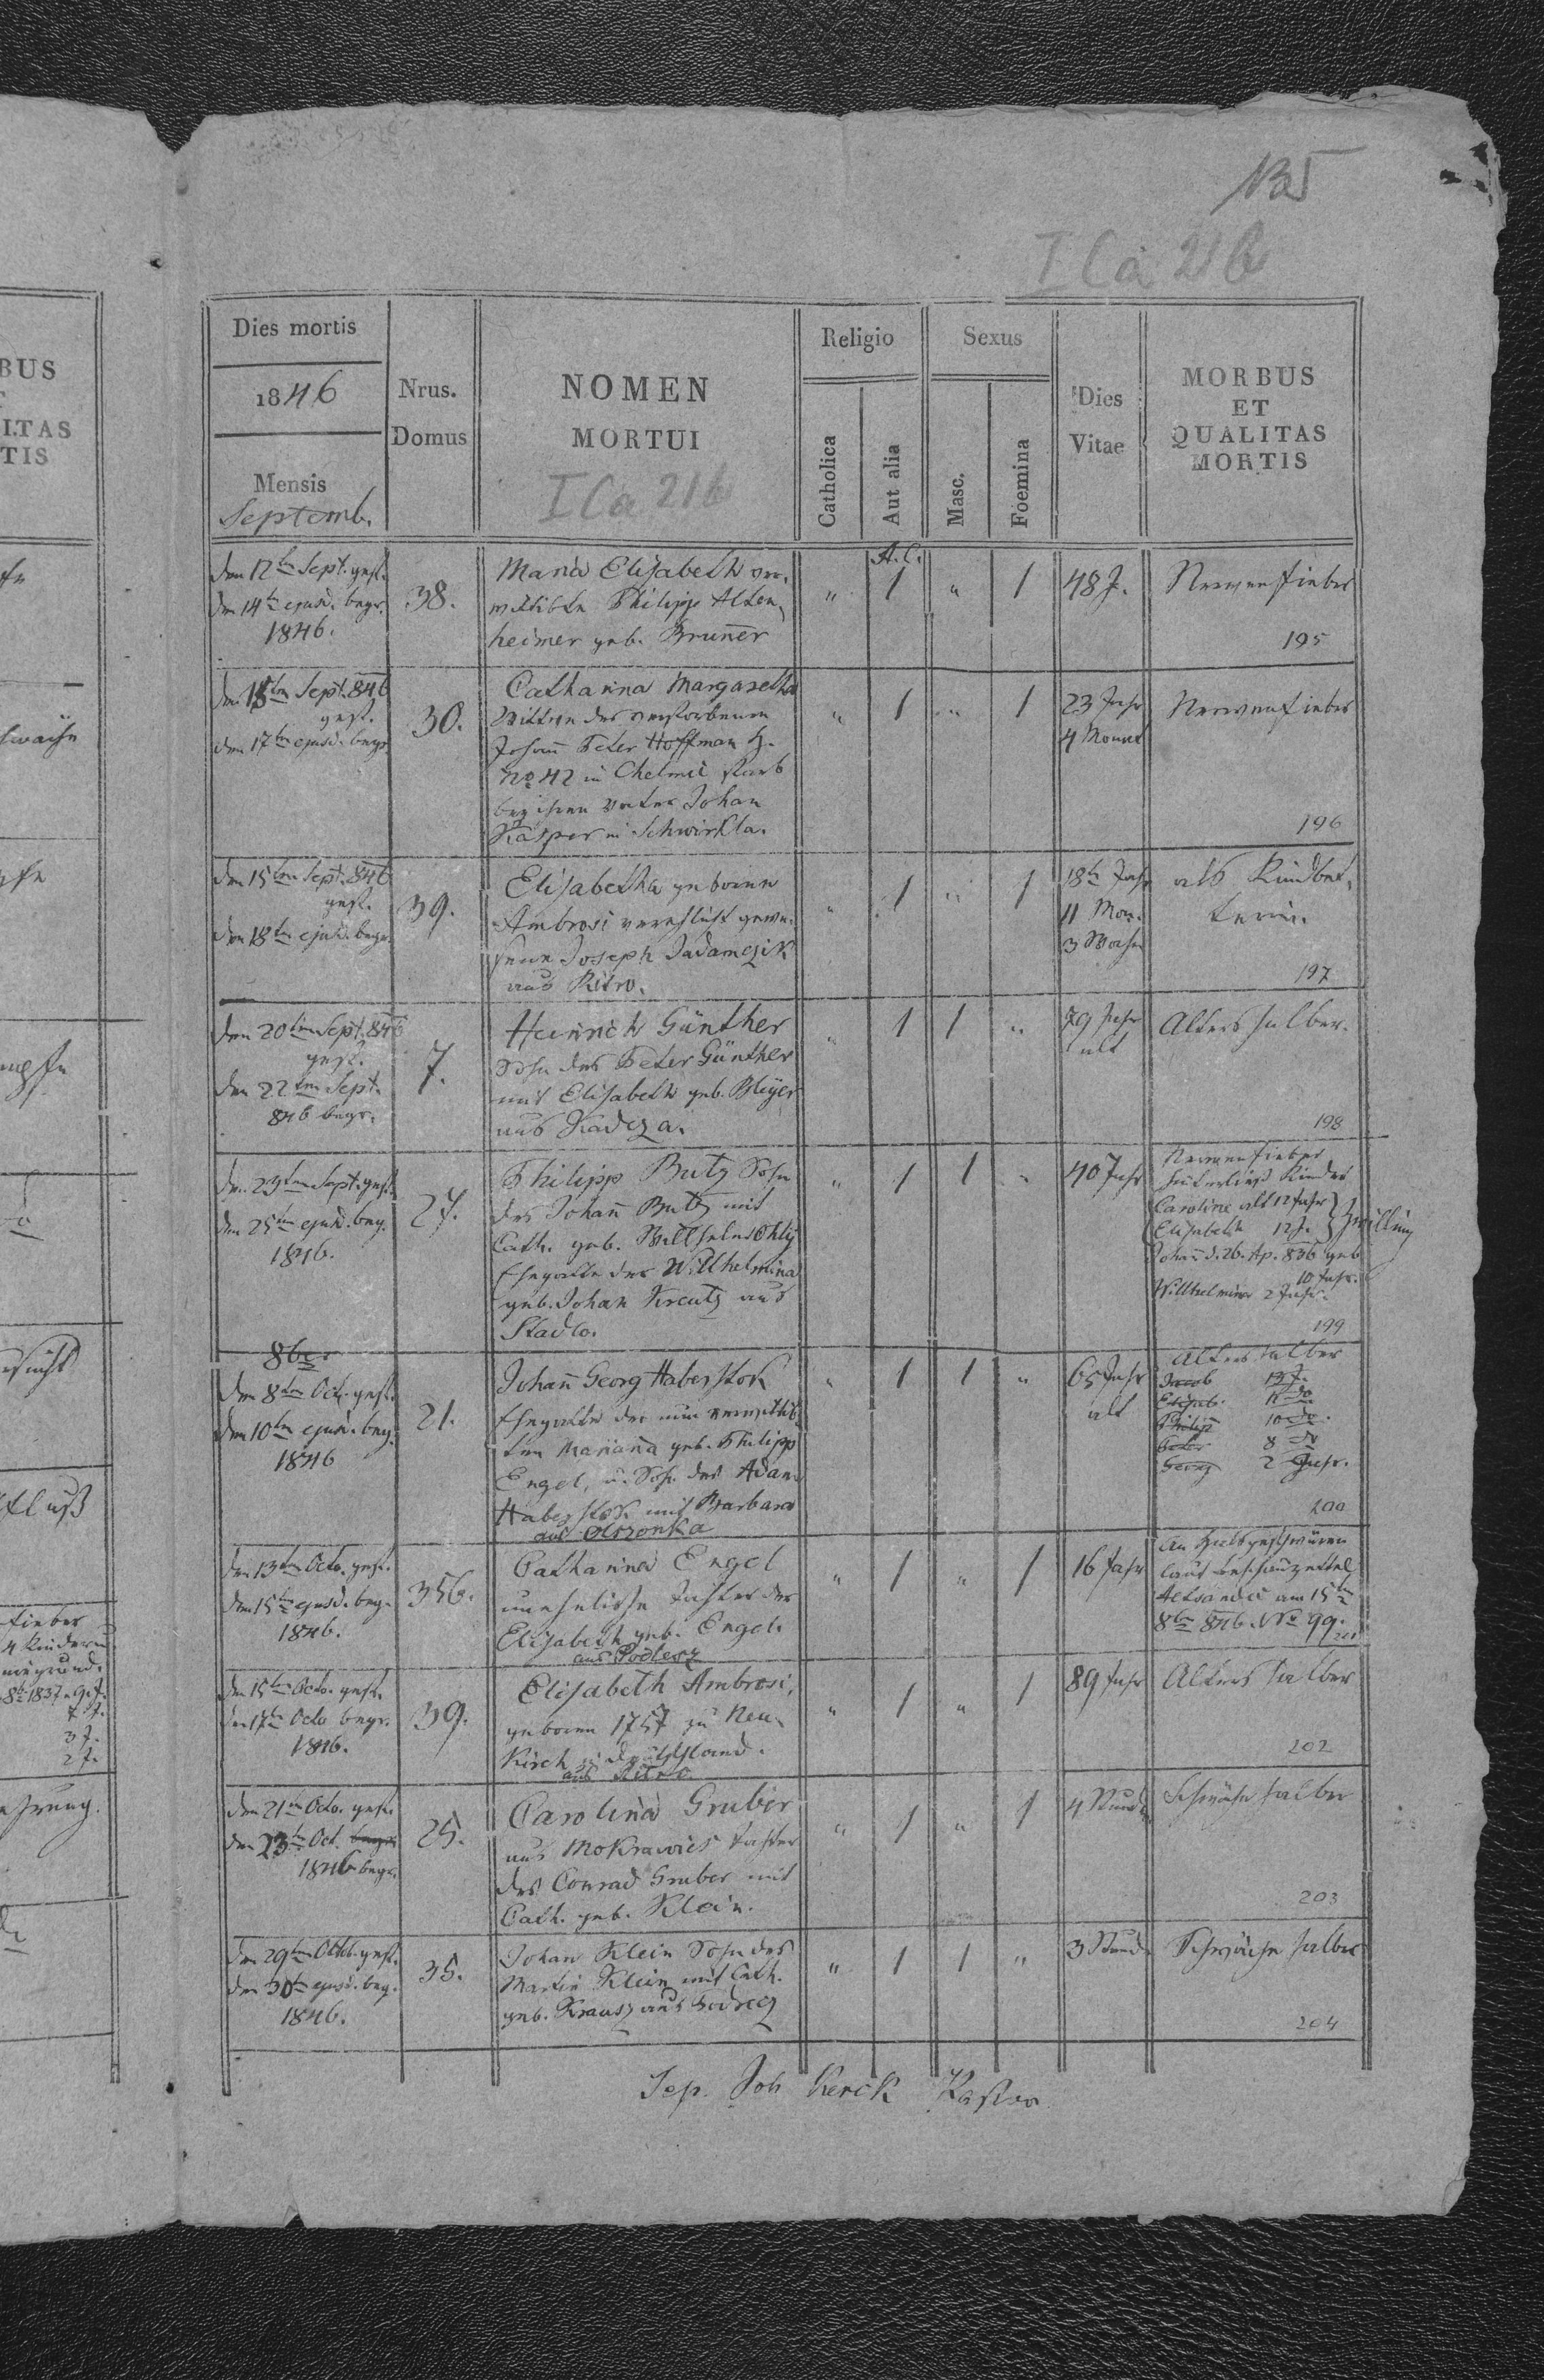 135
I Ca 21b
Dies mortis
1846
Mensis
Septemb.
Nrus.
Domus
NOMEN
MORTUI
I Ca 216
Religio
Catholica
Aut alia
Sexus
Masc.
Foemina
Dies
Vitae
MORBUS
ET
QUALITAS
MORTIS
A.C.
den 12ten Sept. gest.
den 14ten ejusd. begr.
1846.
38.
Maria Elisabeth ver-
wittibte Philipp Alten-
heimer geb. Bruner
" 1 " 1
48 J.
Nervenfieber
195
den 15ten Sept. 846
gest.
den 17ten ejusd. begr.
30.
Catharina Margaretha
Wittwe des verstorbenen
Johann Peter Hoffman H.
No 42 in Chelmic starb
bey ihren Vater Johan
Kasper in Schwirkla.
" 1 " 1
23 Jahr
4 Monat
Nervenfieber
196
den 15ten Sept. 846
gest.
den 18ten ejusd. begr.
39.
Elisabetha geborene
Ambrosi verehlicht gewe-
sene Joseph Jadamczik
aus Ritro.
" 1 " 1
18 Jahr
11 Mon.
3 Wochen
als Kindbet-
terin.
197
den 20ten Sept. 846
gest.
den 22ten Sept.
846 begr.
7.
Heinrich Günther
Sohn des Peter Günther
mit Elisabeth geb. Bleyer
aus Kadcza.
" 1 1 "
79 Jahr
alt
Alters halber.
198
den 23ten Sept. gest.
den 25ten ejusd. beg.
1846.
27.
Philipp Butz Sohn
des Johann Butz mit
Cath. geb. Wilhelm Ohly
Ehegatte der Willhelmina
geb. Johan Kreutz aus
Stadlo.
" 1 1 "
40 Jahr
Nervenfieber
hinterließ Kinder
Caroline alt 12 Jahr
Elisabeth 12 J.
Zwilling
Johann d. 26. Ap. 836 geb
10 Jahr.
Willhelmina 2 Jahr.
199
8ber
den 8ten Oct. gest.
den 10ten ejusd. beg.
1846
21.
Johann Georg Haberstok
Ehegatte der nun verwittib-
ten Mariana geb. Philipp
Engel, u. Sohn des Adam
Haberstok mit Barbara
aus Olszonka
" 1 1 "
65 Jahr
alt
Alters halber
Jacob 13 J.
Elisab. 11 do
Philipp 10 do.
Peter 8 do
Georg 2 Jahr.
200
den 13ten Octo. gest.
den 15ten ejusd. beg.
1846.
356.
Catharina Engel
uneheliche Tochter der
Elisabeth geb. Engel.
aus Podecz
" 1 " 1
16 Jahr
An Halsgeschwüren
laut Beschauzettel
Altsandec am 15ten
8ber 846. No 99.
201
den 15ten Octo. gest.
den 17ten Octo begr.
1846.
39.
Elisabeth Ambrosi,
geboren 1757 zu Neu-
Kirch in Deutschland.
aus Ritro
" 1 " 1
89 Jahr
Alters halber
202
den 21ten Octo. gest.
den 23ten Oct. begr.
1846 begr.
25.
Carolina Gruber
aus Mokrawies Tochter
des Conrad Gruber mit
Cath. geb. Klein.
" 1 " 1
4 Stund
Schwäche halber
203
den 29ten Octob. gest.
den 30ten ejusd. beg.
1846.
35.
Johan Klein Sohn des
Martin Klein mit Cath.
geb. Krausz aus Podrecz
" 1 1 "
3 Stund.
Schwäche halber
204
Sep. Joh Kerck Pastor